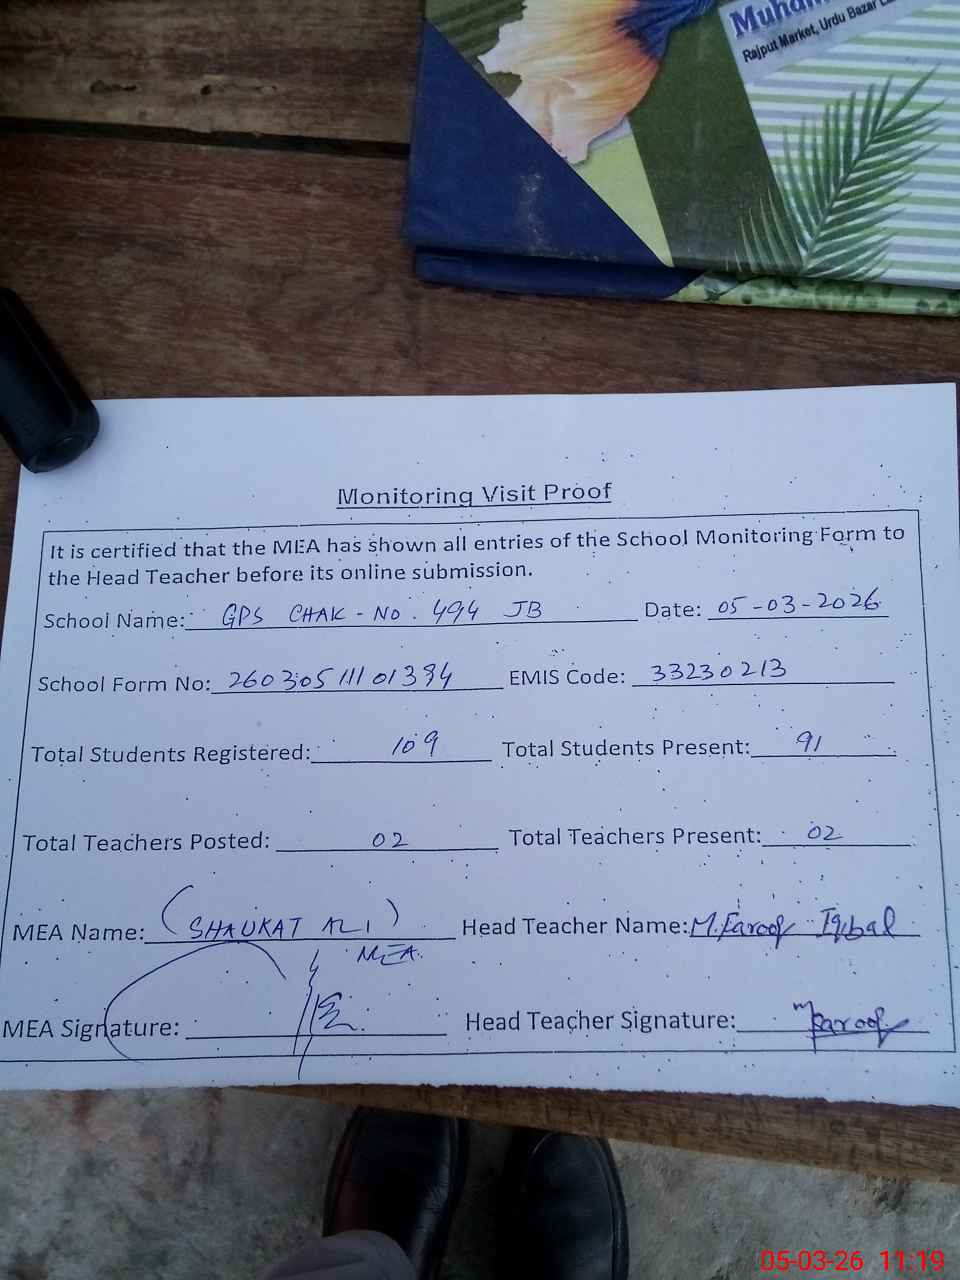 Rajput Market, Urdu Bazar
Monitoring Visit Proof
It is certified that the MEA has shown all entries of the School Monitoring Form to
the Head Teacher before its online submission.
School Name: GPS CHAK-NO. 494 JB Date: 05-03-2026
School Form No: EMIS Code: 33230213
Total Students Registered: 109 Total Students Present: 91
Total Teachers Posted: 02 Total Teachers Present: 02
MEA Name: (SHAUKAT ALI) Head Teacher Name: M.Farooq Iqbal
MEA.
MEA Signature: Head Teacher Signature: MFarooq
05-03-26 11:19